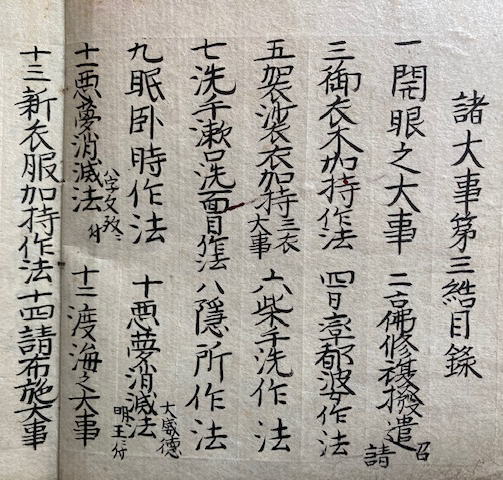 諸大事第三結目錄
一開眼之大事 二古佛修複撥遣召請
三御衣木加持作法 四窣都婆作法
五袈裟衣加持三衣大事 六柴手洗作法
七洗手漱口洗面目作法 八隱所作法
九眠卧時作法 十悪夢消滅法大威徳明王付
十一悪夢消滅法八字文殊付 十二渡海之大事
十三新衣服加持作法十四請布施大事